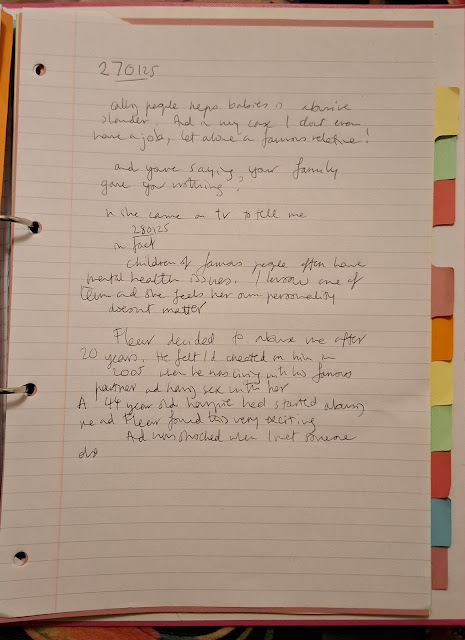 270125
calling people nepo babies is abusive
slander. And in my case I dont even
have a job, let alone a famous relative!
and youre saying, your family
gave you nothing?
n she came on tv to tell me
280125
in fact
children of famous people often have
mental health issues. I know one of
them and she feels her own personality
doesnt matter
Fleur decided to abuse me after
20 years. He felt I'd cheated on him in
2005 when he was living with his famous
partner and having sex with her
A 44 year old had started abusing
me and Fleur found this very exciting
And was shocked when I met someone